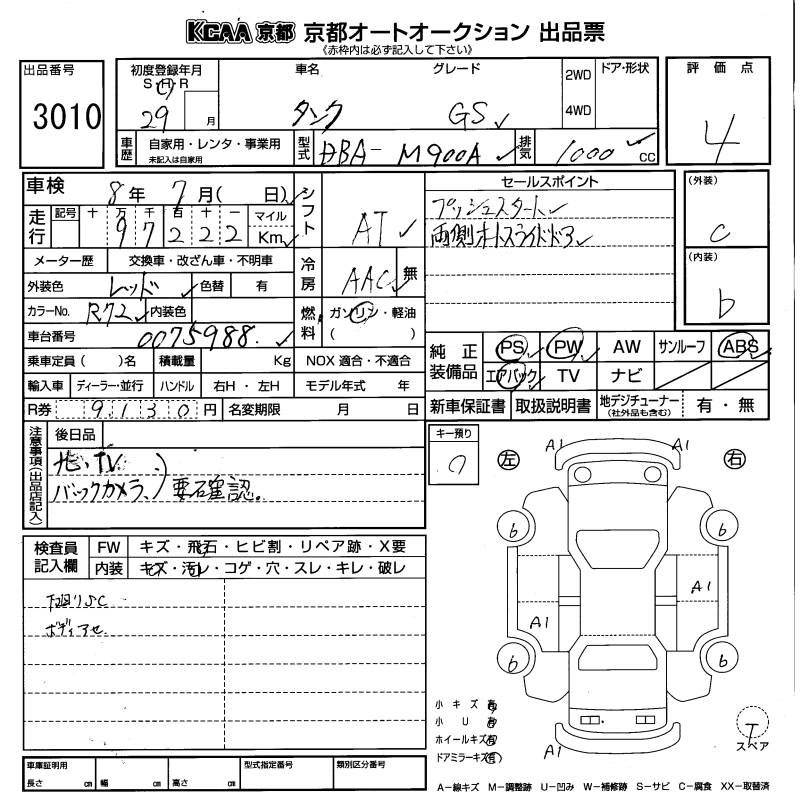 KCAA 京都 京都オートオークション 出品票
《赤枠内は必ず記入して下さい》
出品番号
3010
初度登録年月
S・H・R
29 月
車名
タンク
グレード
GS
2WD
4WD
ドア・形状
評価点
4
車歴
自家用・レンタ・事業用
未記入は自家用
型式
DBA- M900A
排気
1000 cc
車検
8年 7月( 日)
走行
記号 十 万 千 百 十 一
9 7 2 2 2
マイル
Km
シフト
AT
メーター歴 交換車・改ざん車・不明車
冷房
AAC
無
外装色 レッド 色替 有
カラーNo. R72 内装色
燃料
ガソリン・軽油
( )
車台番号 0075988.
乗車定員( )名 積載量 Kg NOX 適合・不適合
輸入車 ディーラー・並行 ハンドル 右H・左H モデル年式 年
R券 9130円 名変期限 月 日
セールスポイント
プッシュスタート
両側オートスライドドア
(外装)
C
(内装)
b
純正装備品
PS PW AW サンルーフ ABS
エアバック TV ナビ
新車保証書 取扱説明書 地デジチューナー(社外品も含む) 有・無
注意事項(出品店記入)
後日品
地、TV
バックカメラ、) 要確認。
キー預り
0
左
右
A1 A1
b b
A1
A1
b b
A1
検査員記入欄
FW キズ・飛石・ヒビ割・リペア跡・X要
内装 キズ・汚れ・コゲ・穴・スレ・キレ・破レ
下廻りSC
ボディアセ
小キズ有
小U有
ホイールキズ有
ドアミラーキズ(有)
T
スペア
車庫証明用
長さ cm 幅 cm 高さ cm
型式指定番号
類別区分番号
A−線キズ M−調整跡 U−凹み W−補修跡 S−サビ C−腐食 XX−取替済